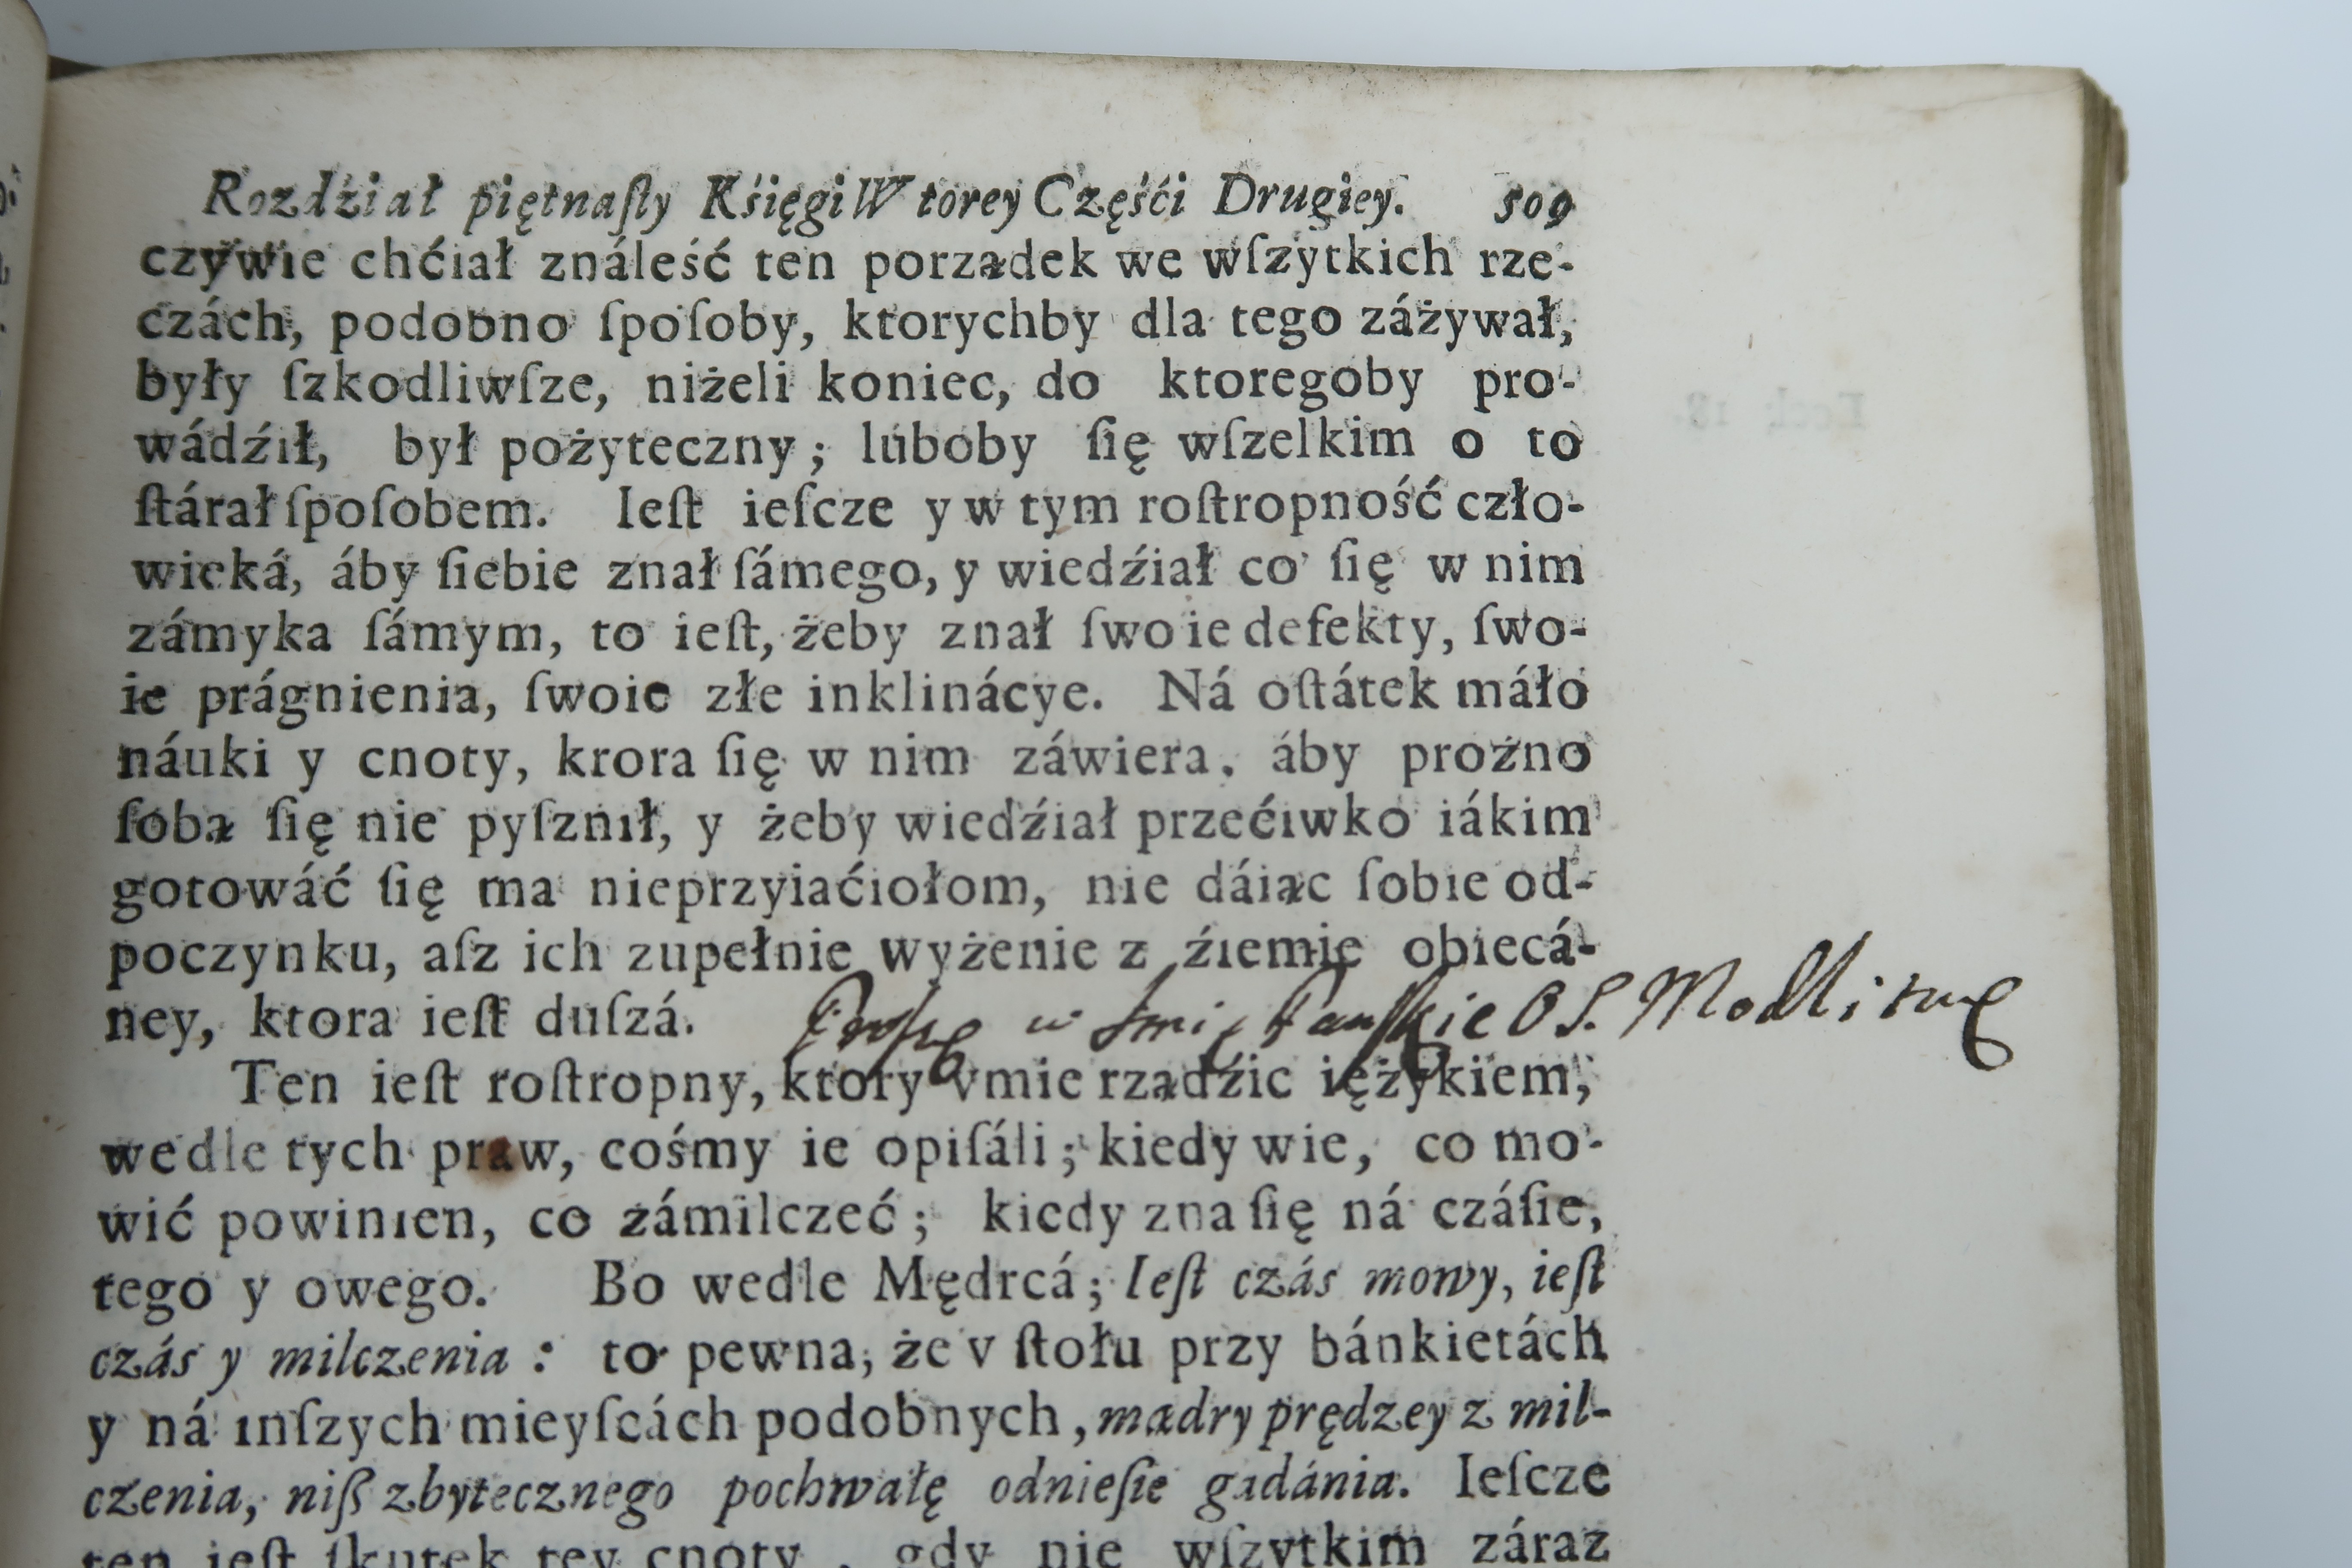 Rozdźiał piętnaſty Kśięgi Wtorey Częśći Drugiey. 509
czywie chćiał ználeść ten porządek we wſzytkich rze-
czách, podobno ſpoſoby, ktorychby dla tego záżywał,
były ſzkodliwſze, niżeli koniec, do ktoregoby pro-
wádźił, był pożyteczny; luboby ſię wſzelkim o to
ſtárał ſpoſobem. Ieſt ieſcze y w tym roſtropność czło-
wieká, áby ſiebie znał ſámego, y wiedźiał co ſię w nim
zámyka ſámym, to ieſt, żeby znał ſwoie defekty, ſwo-
ie prágnienia, ſwoie złe inklinácye. Ná oſtátek máło
náuki y cnoty, krora ſię w nim záwiera, áby prożno
ſobą ſię nie pyſznił, y żeby wiedźiał przećiwko iákim
gotowáć ſię ma nieprzyiaćiołom, nie dáiąc ſobie od-
poczynku, aſz ich zupełnie wyżenie z źiemie obiecá-
ney, ktora ieſt duſzá. Proſzę w Imię Pańſkie o S. Modlitwę
Ten ieſt roſtropny, ktory vmie rządźic ięzykiem,
wedle tych praw, cośmy ie opiſáli; kiedy wie, co mo-
wić powinien, co zámilczeć; kiedy zna ſię ná czáſie,
tego y owego. Bo wedle Mędrcá; Ieſt czás mowy, ieſt
czás y milczenia: to pewna, że v ſtołu przy bánkietách
y ná inſzych mieyſcách podobnych, mądry prędzey z mil-
czenia, niſz zbytecznego pochwałę odnieſie gadánia. Ieſcze
ten ieſt ſkutek tey cnoty, gdy nie wſzytkim záraz